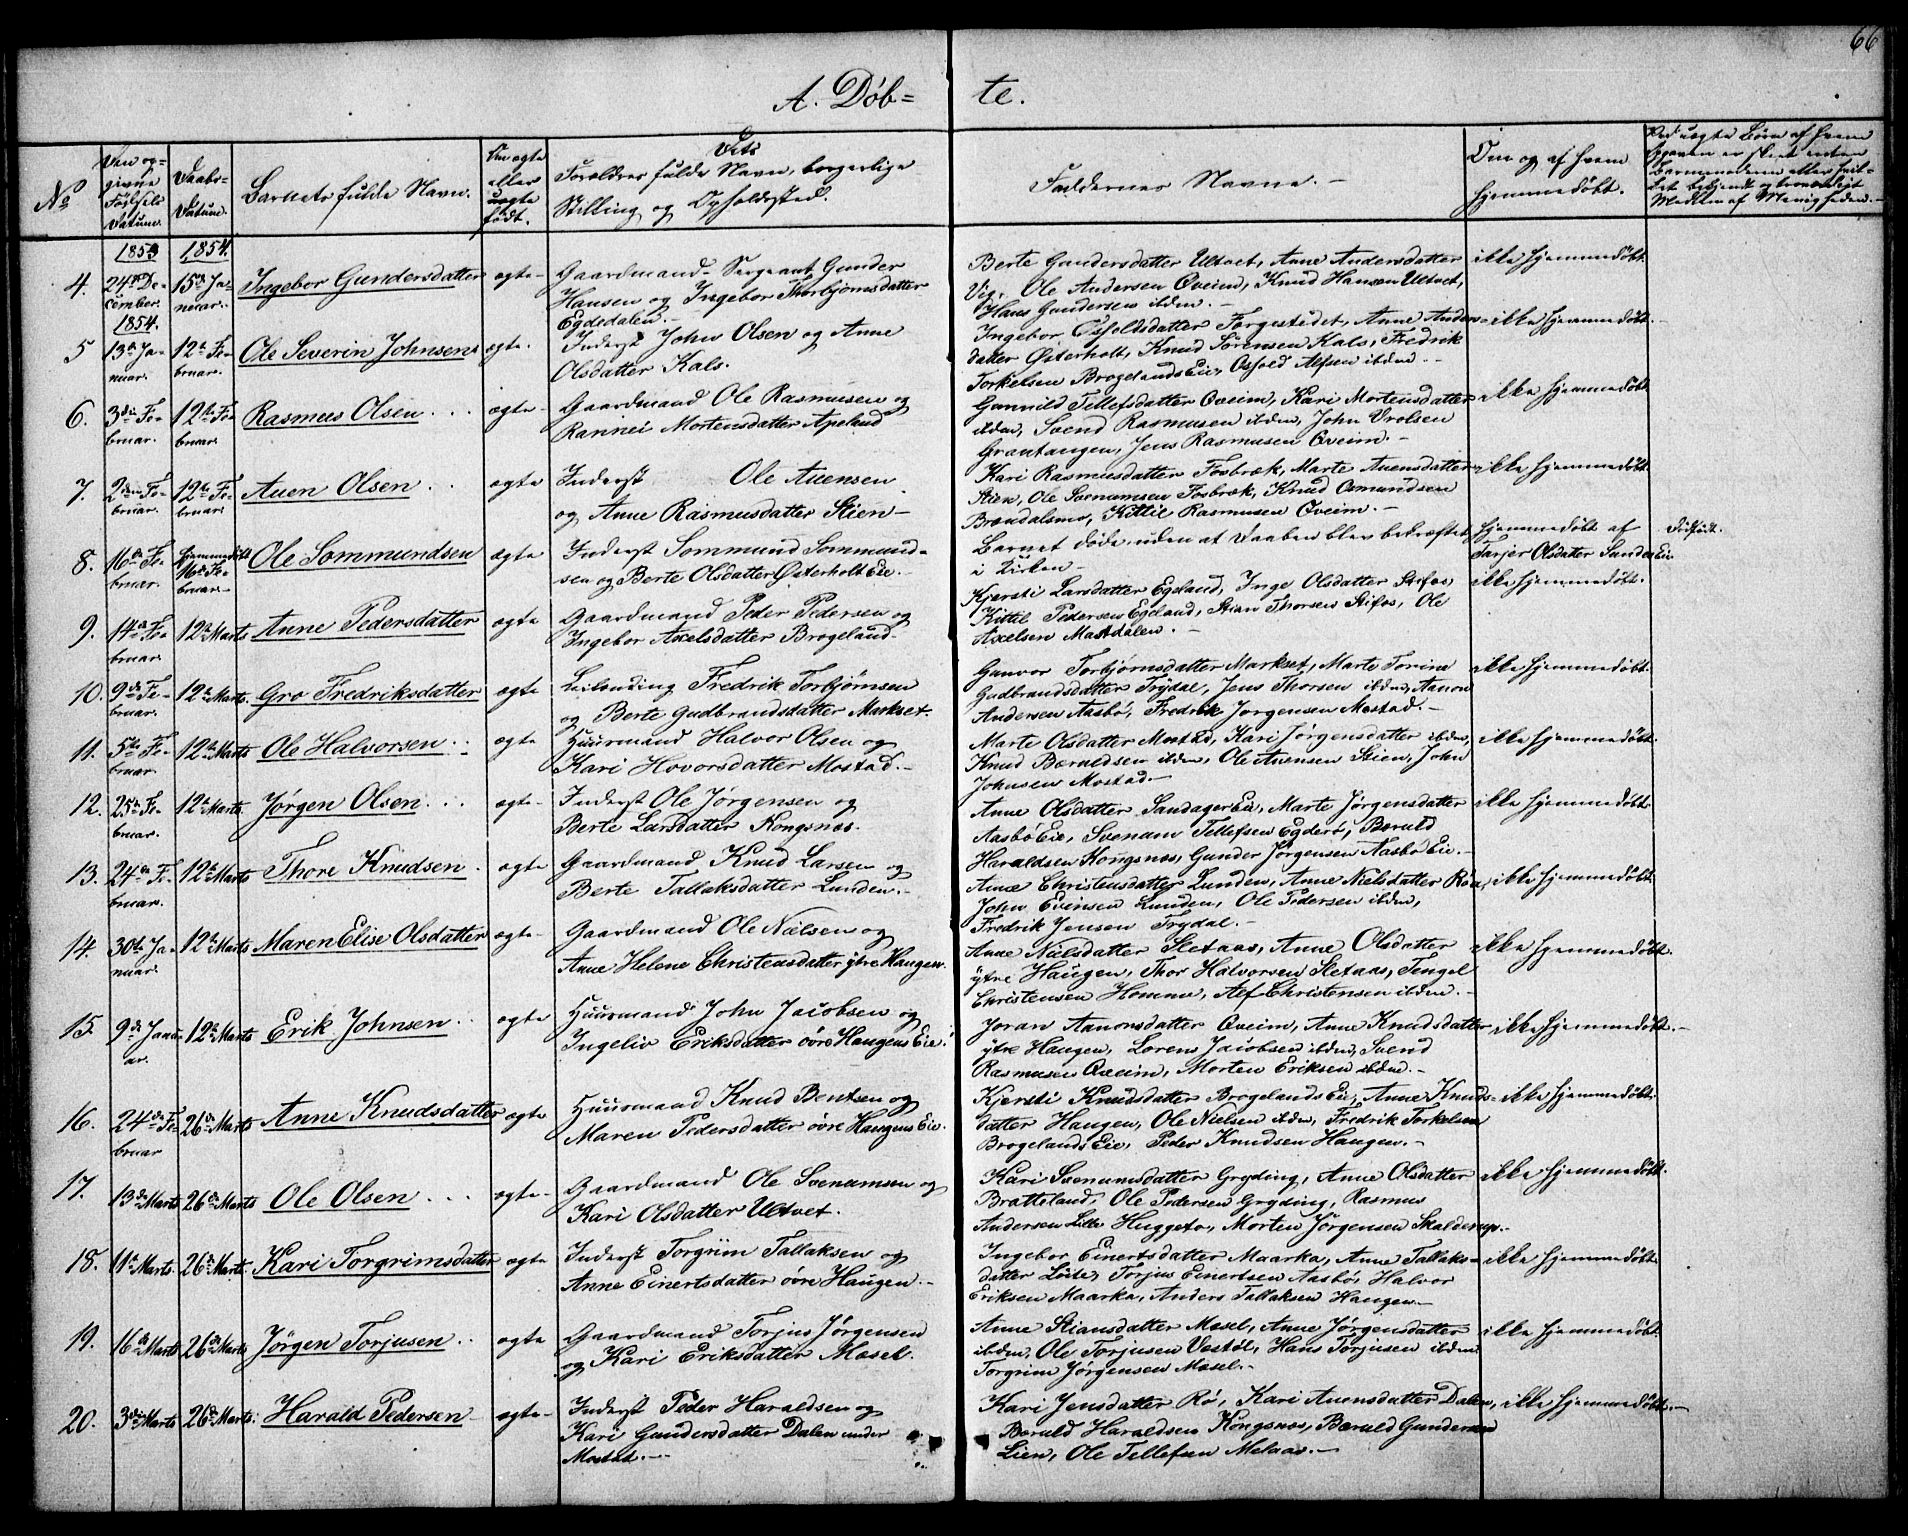 66
A. Døb= te.
No
Den op=
givne
Fødsels
Datum.
Daabs-
Datum.
Barnets fulde Navn.
Om ægte
eller
uægte
født.
Dets
Forældres fulde Navn, borgerlige
Stilling og Opholdssted.
Faddernes Navne. -
Om og af hvem
hjemmedøbt.
1853
1854.
4. 24de De-
cember.
15de Ja-
nuar.
Ingebor Gundersdatter ægte-
Gaardmand- Sergeant Gunder
Hansen og Ingebor Thorbjørnsdatter
Egdedalen.-
Berte Gundersdatter Ultvet, Anne Andersdatter
Vig, Ole Andersen Øveim, Knud Hansen Ultvet,
Hans Gundersen ibdm.-
ikke hjemmedøbt.
1854.
5 13de Ja-
nuar.
12te Fe-
bruar.
Ole Severin Johnsen ægte.
Inderst John Olsen og Anne
Olsdatter Kals.
Ingebor Osfoldsdatter Forgestedet, Anne Anders-
datter Østerholt, Knud Sørensen Kals, Fredrik
Torkelsen Brogelands Eie, Osfold Alfsen ibdm.-
ikke hjemmedøbt.-
6. 3die Fe-
bruar.
12te Fe-
bruar.
Rasmus Olsen ... ægte-
Gaardmand Ole Rasmusen og
Rannei Mortensdatter Apeland
Gunnild Tellefsdatter Øveim, Kari Mortensdatter
ibdm, Svend Rasmusen ibdm, John Vrolsen
Grantangen, Jens Rasmusen Øveim.-
ikke hjemmedøbt
7. 2den Fe-
bruar.
12te Fe-
bruar.
Auen Olsen .. ægte
Inderst Ole Auensen
og Anne Rasmusdatter Stien-
Kari Rasmusdatter Fosbræk, Marte Auensdatter
Stien, Ole Svenumsen Fosbræk, Knud Osmundsen
Brændalsmo, Kittil Rasmusen Øveim.-
ikke hjemmedøbt.
8. 16de Fe-
bruar.
hjemmedøbt
16de Fe-
bruar.-
Ole Sommundsen ægte
Inderst Sommund Sommund-
sen og Berte Olsdatter Østerholt Eie.-
Barnet døde, uden at Daaben blev bekræftet
i Kirken.-
hjemmedøbt af
Tarjer Olsdatter Sandes Eie
9. 14de Fe-
bruar.
12te Marts
Anne Pedersdatter ægte
Gaardmand Peder Pedersen og
Ingebor Axelsdatter Brogeland-
Kjersti Larsdatter Egeland, Inge Olsdatter Stifos,
Kittil Pedersen Egeland, Stian Thorsen Stifos, Ole
Axelsen Mastdalen.-
ikke hjemmedøbt.
10. 9de Fe-
bruar.
12te Marts.
Gro Fredriksdatter ægte
Leilending Fredrik Torbjørnsen
og Berte Gudbrandsdatter Markset.
Gunvor Torbjørnsdatter Markset, Marte Torine
Gudbrandsdatter Trydal, Jens Thorsen ibdm, Aanon
Andersen Aasbø, Fredrik Jørgensen Mostad.-
ikke hjemmedøbt.
11. 5te Fe-
bruar
12te Marts
Ole Halvorsen .. ægte
Huusmand Halvor Olsen og
Kari Hovorsdatter Mostad.-
Marte Olsdatter Mostad, Kari Jørgensdatter ibdm,
Knud Bæruldsen ibdm, Ole Auensen Stien, John
Johnsen Mostad.-
ikke hjemmedøbt.
12. 25de Fe-
bruar.
12te Marts
Jørgen Olsen ... ægte-
Inderst Ole Jørgensen og
Berte Larsdatter Kongsnæs.
Anne Olsdatter Sandager Eie, Marte Jørgensdatter
Aasbø Eie, Svenum Tellefsen Egderø, Bæruld
Haraldsen Kongsnæs, Gunder Jørgensen Aasbø Eie.-
ikke hjemmedøbt
13. 24de Fe-
bruar.
12te Marts
Thore Knudsen . ægte
Gaardmand Knud Larsen og
Berte Tallaksdatter Lunden.-
Anne Christensdatter Lunden, Anne Nielsdatter Røa,
John Evensen Lunden, Ole Pedersen ibdm,
Fredrik Jensen Trydal.-
ikke hjemmedøbt
14. 30te Ja-
nuar.
12te Marts
Maren Elise Olsdatter ægte-
Gaardmand Ole Nielsen og
Anne Helene Christensdatter ytre Haugen.
Anne Nielsdatter Sletaas, Anne Olsdatter
ytre Haugen, Thor Halvorsen Sletaas, Tengel
Christensen Homme, Alf Christensen ibdm.-
ikke hjemmedøbt.
15. 9de Janu-
ar.
12te Marts
Erik Johnsen .. ægte
Huusmand John Jacobsen og
Ingeliv Eriksdatter øvre Haugens Eie.
Joran Aanonsdatter Øveim, Anne Knudsdatter
ytre Haugen, Lorens Jacobsen ibdm, Svend
Rasmusen Øveim, Morten Eriksen ibdm.-
ikke hjemmedøbt.-
16. 24de Fe-
bruar
26de Marts
Anne Knudsdatter ægte
Huusmand Knud Bentsen og
Maren Pedersdatter øvre Haugens Eie.
Kjersti Knudsdatter Brogelands Eie, Anne Knuds-
datter Haugen, Ole Nielsen ibdm, Fredrik Torkelsen
Brogelands Eie, Peder Knudsen Haugen.-
ikke hjemmedøbt.
17. 13de Marts 26de Marts
Ole Olsen ... ægte-
Gaardmand Ole Svenumsen og
Kari Olsdatter Ultvet.
Kari Svenumsdatter Gryding, Anne Olsdatter
Bratteland, Ole Pedersen Gryding, Rasmus
Andersen Lille Huggeto, Morten Jørgensen Skalderup.-
ikke hjemmedøbt.
18. 11te Marts 26de Marts.
Kari Torgrimsdatter ægte
Inderst Torgrim Tallaksen og
Anne Einertsdatter øvre Haugen.-
Ingebor Einertsdatter Maarka, Anne Tallaks-
datter Løite, Torjus Einertsen Aasbø, Halvor
Eriksen Maarka, Anders Tallaksen Haugen.-
ikke hjemmedøbt
19. 16de Marts 26de Marts
Jørgen Torjusen .. ægte
Gaardmand Torjus Jørgensen
og Kari Eriksdatter Mosel.
Anne Stiansdatter Mosel, Anne Jørgensdatter
ibdm, Ole Torjusen Vestøl, Hans Torjusen ibdm
Torgrim Jørgensen Mosel.-
ikke hjemmedøbt.
20. 3die Marts 26de Marts.
Harald Pedersen ægte-
Inderst Peder Haraldsen og
Kari Gundersdatter Dalen under
Mostad.-
Kari Jensdatter Rø, Kari Auensdatter Dalen,
Bæruld Haraldsen Kongsnæs, Bæruld Gundersen
Lien, Ole Tellefsen Melaas.-
ikke hjemmedøbt.-